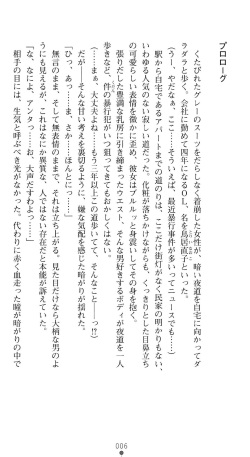 プロローグ
くたびれたグレーのスーツをだらしなく着崩した女性が、暗い夜道を自宅に向かってダ
ラダラと歩く。会社に勤めて四年になるＯＬ、名を鳥居直子といった。
（うー、やだなぁ、ここ……そういえば、最近暴行事件が多いってニュースでも……）
駅から自宅であるアパートまでの道のりは、ここだけ街灯がなく民家の明かりもない、
いわゆる人気のない寂しい道だった。化粧が落ちかけながらも、くっきりとした目鼻立ち
の可愛らしい表情を微かに歪め、彼女はブルルッと身震いしてその道を歩く。スーツを
張りだした豊満な乳房に引き締まったウエスト、そんな男好きするボディが夜道を一人
歩きなど、件の暴行犯がいつ狙ってきてもおかしくはない。
（……まぁ、大丈夫よね……もう三年以上この道歩いてて、そんなこと──っ!?）
だが──そんな甘い考えを裏切るように、嫌な気配を感じた暗がりが揺れた。
「ひっ……あっ……ま、さか……ほんとに……っ」
無言のまま、そして無表情のままで、それは立ち上がる。見た目だけなら大柄な男のよ
うにも見えるが、これは違う。明らかに異質な、人ではない存在だと本能が訴えていた。
「な、なによ、アンタっ……お、大声だすわよっ……」
相手の目には、生気と呼ぶべき光がなかった。代わりに赤く血走った瞳が暗がりの中で
006